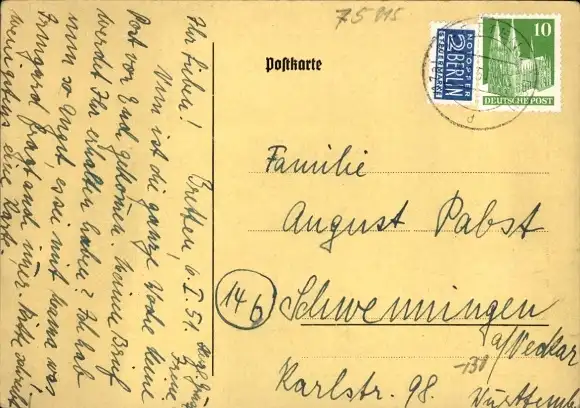 75 815
Postkarte
NOTOPFER
2 BERLIN
STEUERMARKE
10
DEUTSCHE POST
Familie
August Pabst
14b
Schwenningen
a/Neckar
Karlstr. 98.
-130
Württemb
Bretten, 6. I. 51.
Ihr lieben!
Nun ist die ganze Woche keine
Post von Euch gekommen. Meinen Brief
werdet Ihr erhalten haben? Ich hab
nun so Angst, es sei mit Mama was
Irmgard fragt auch immer. Bitte schreibt
eine Karte.